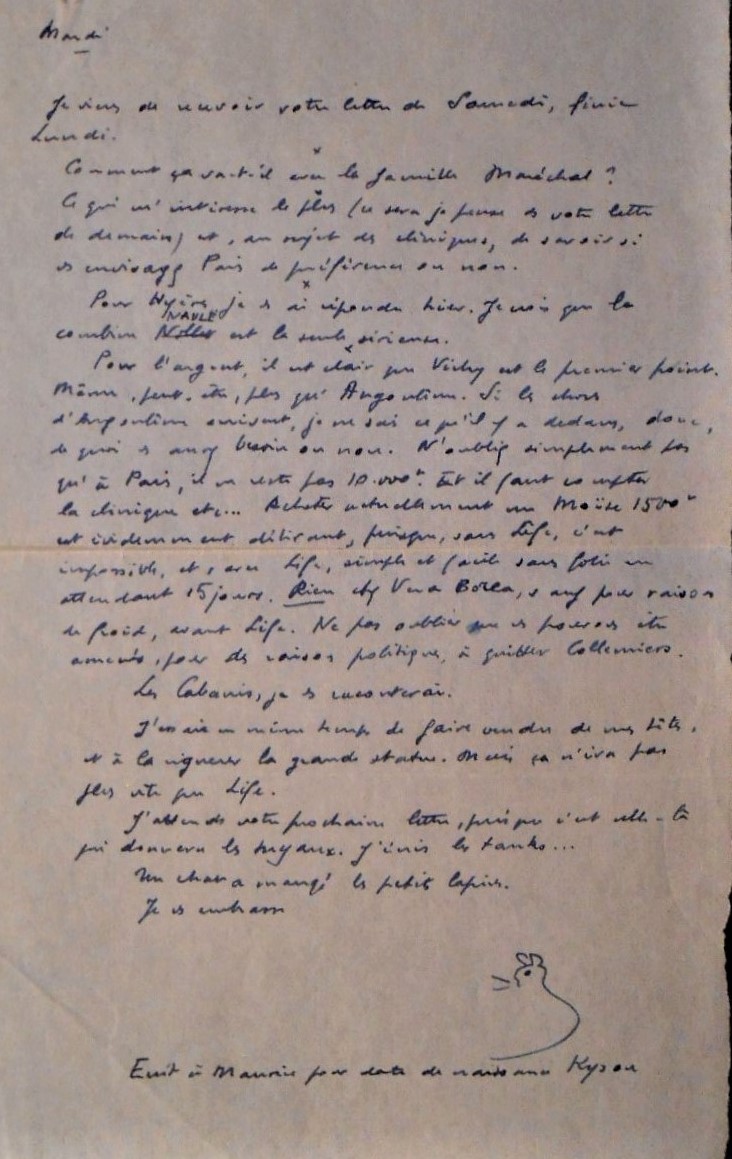 Mardi
Je viens de recevoir votre lettre de Samedi, finie
Lundi.
Comment ça va-t-il avec la famille Maréchal ?
Ce qui m'intéresse le plus (ce sera je pense ds votre lettre
de demain) est, au sujet des cliniques, de savoir si
vs envisagez Paris de préférence ou non.
Pour Hyères, je vs ai répondu hier. Je crois que la
combine NAULE est la seule sérieuse.
Pour l'argent, il est clair que Vichy est le premier point.
Même, peut-être, plus qu'Angoulème. Si les choses
d'Angoulème arrivent, je ne sais ce qu'il y a dedans, donc,
de quoi vs aurez besoin ou non. N'oubliez simplement pas
qu'à Paris, il ne reste pas 10.000 fr. Et il faut compter
la clinique etc... Acheter actuellement un Moïse 1500 fr
est évidemment délirant, puisque, sans Life, c'est
impossible, et, avec Life, simple et facile sans folie en
attendant 15 jours. Rien chez Vera Borea, sauf pour raison
de froid, avant Life. Ne pas oublier que vs pouvons être
amenés, pour des raisons politiques, à quitter Collemiers.
Les Cabanis, je vs raconterai.
J'essaie en même temps de faire vendre de mes têtes,
et à la rigueur la grande statue. Mais ça n'ira pas
plus vite que Life.
J'attends votre prochaine lettre, puisque c'est celle-là
qui donnera les tuyaux. J'écris les tanks...
Un chat a mangé les petits lapins.
Je vs embrasse
Écrit à Maurice pour date de naissance Kyson